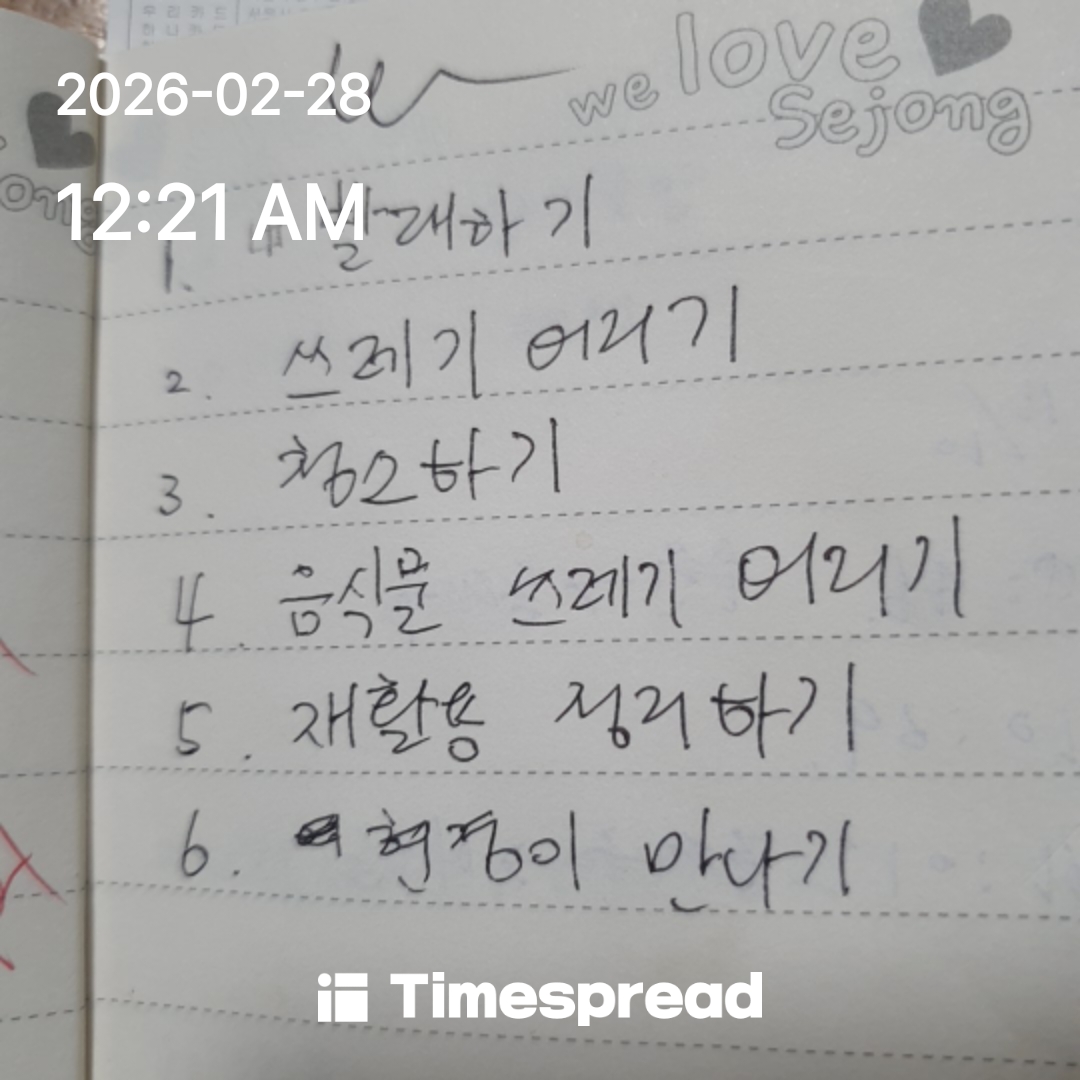 우 리 카 드
하 나 카 드
we love
Sejong
2026-02-28
12:21 AM
1. 빨래하기
2. 쓰레기 버리기
3. 청소하기
4. 음식물 쓰레기 버리기
5. 재활용 정리하기
6. 현정이 만나기
Timespread